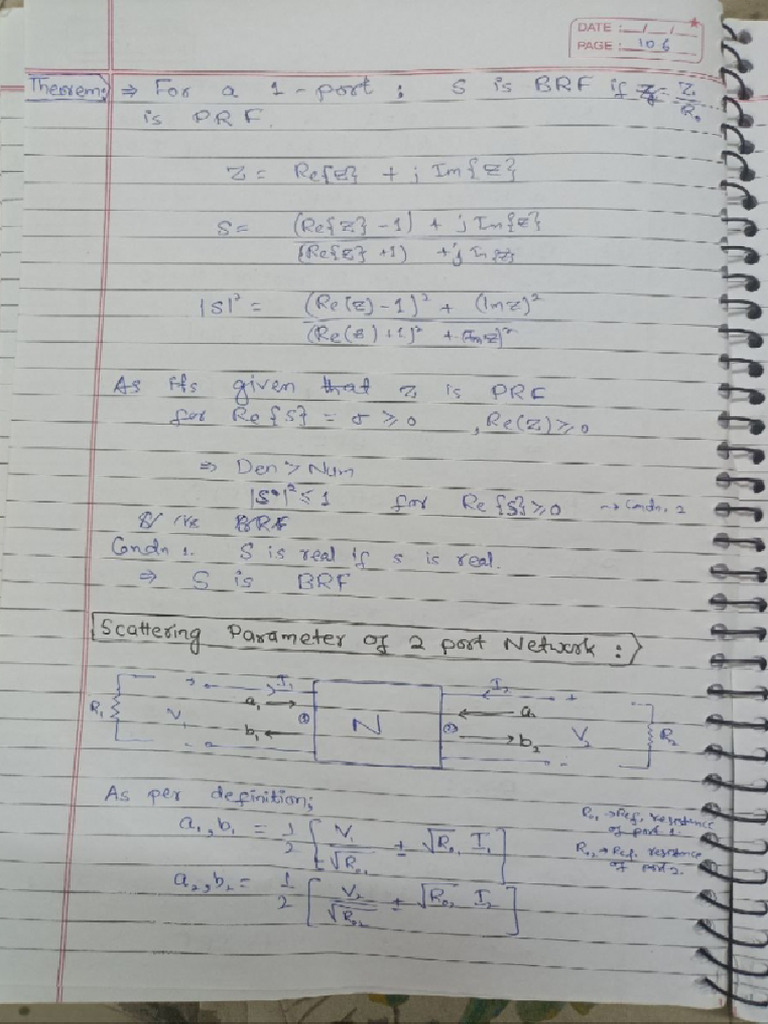 DATE : / /
PAGE : 106
Theorem: ⇒ For a 1-port: S is BRF if z = Z/R₀
is PRF.
Z = Re{z} + j Im{z}
S = (Re{z} - 1) + j Im{z} / (Re{z} + 1) + j Im{z}
|S|² = (Re(z) - 1)² + (Imz)² / (Re(z) + 1)² + (Imz)²
As its given that z is PRF
for Re{s} = σ ≥ 0 , Re(z) ≥ 0
⇒ Den > Num
|S|² ≤ 1 for Re{s} ≥ 0 → Condn. 2
BRF
Condn 1. S is real if s is real.
⇒ S is BRF
Scattering Parameter of 2 port Network :
I₁ I₂
R₁ V₁ a₁ b₁ N a₂ b₂ V₂ R₂
As per definition;
a₁, b₁ = 1/2 [ V₁/√R₀₁ ± √R₀₁ I₁ ]
R₀₁ → Ref. resistance of port 1.
R₀₂ → Ref. resistance of port 2.
a₂, b₂ = 1/2 [ V₂/√R₀₂ ± √R₀₂ I₂ ]